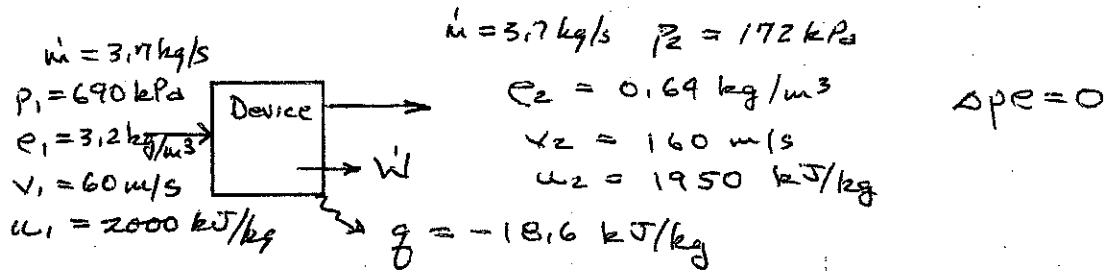 ṁ = 3,7 kg/s
p₁ = 690 kPa
ρ₁ = 3,2 kg/m³
v₁ = 60 m/s
u₁ = 2000 kJ/kg
Device
Ẇ
q = -18,6 kJ/kg
ṁ = 3,7 kg/s p₂ = 172 kPa
ρ₂ = 0,64 kg/m³
v₂ = 160 m/s
u₂ = 1950 kJ/kg
Δpe = 0